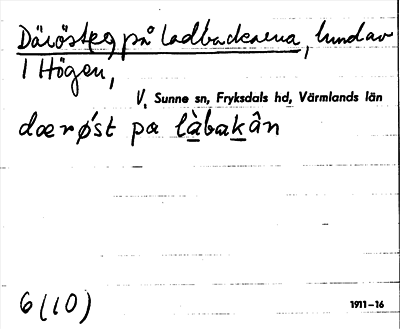 Däröster på Ladbackarna, lund av
1 Högen,
V. Sunne sn, Fryksdals hd, Värmlands län
dærǿst pa làbakân
6(10)
1911–16